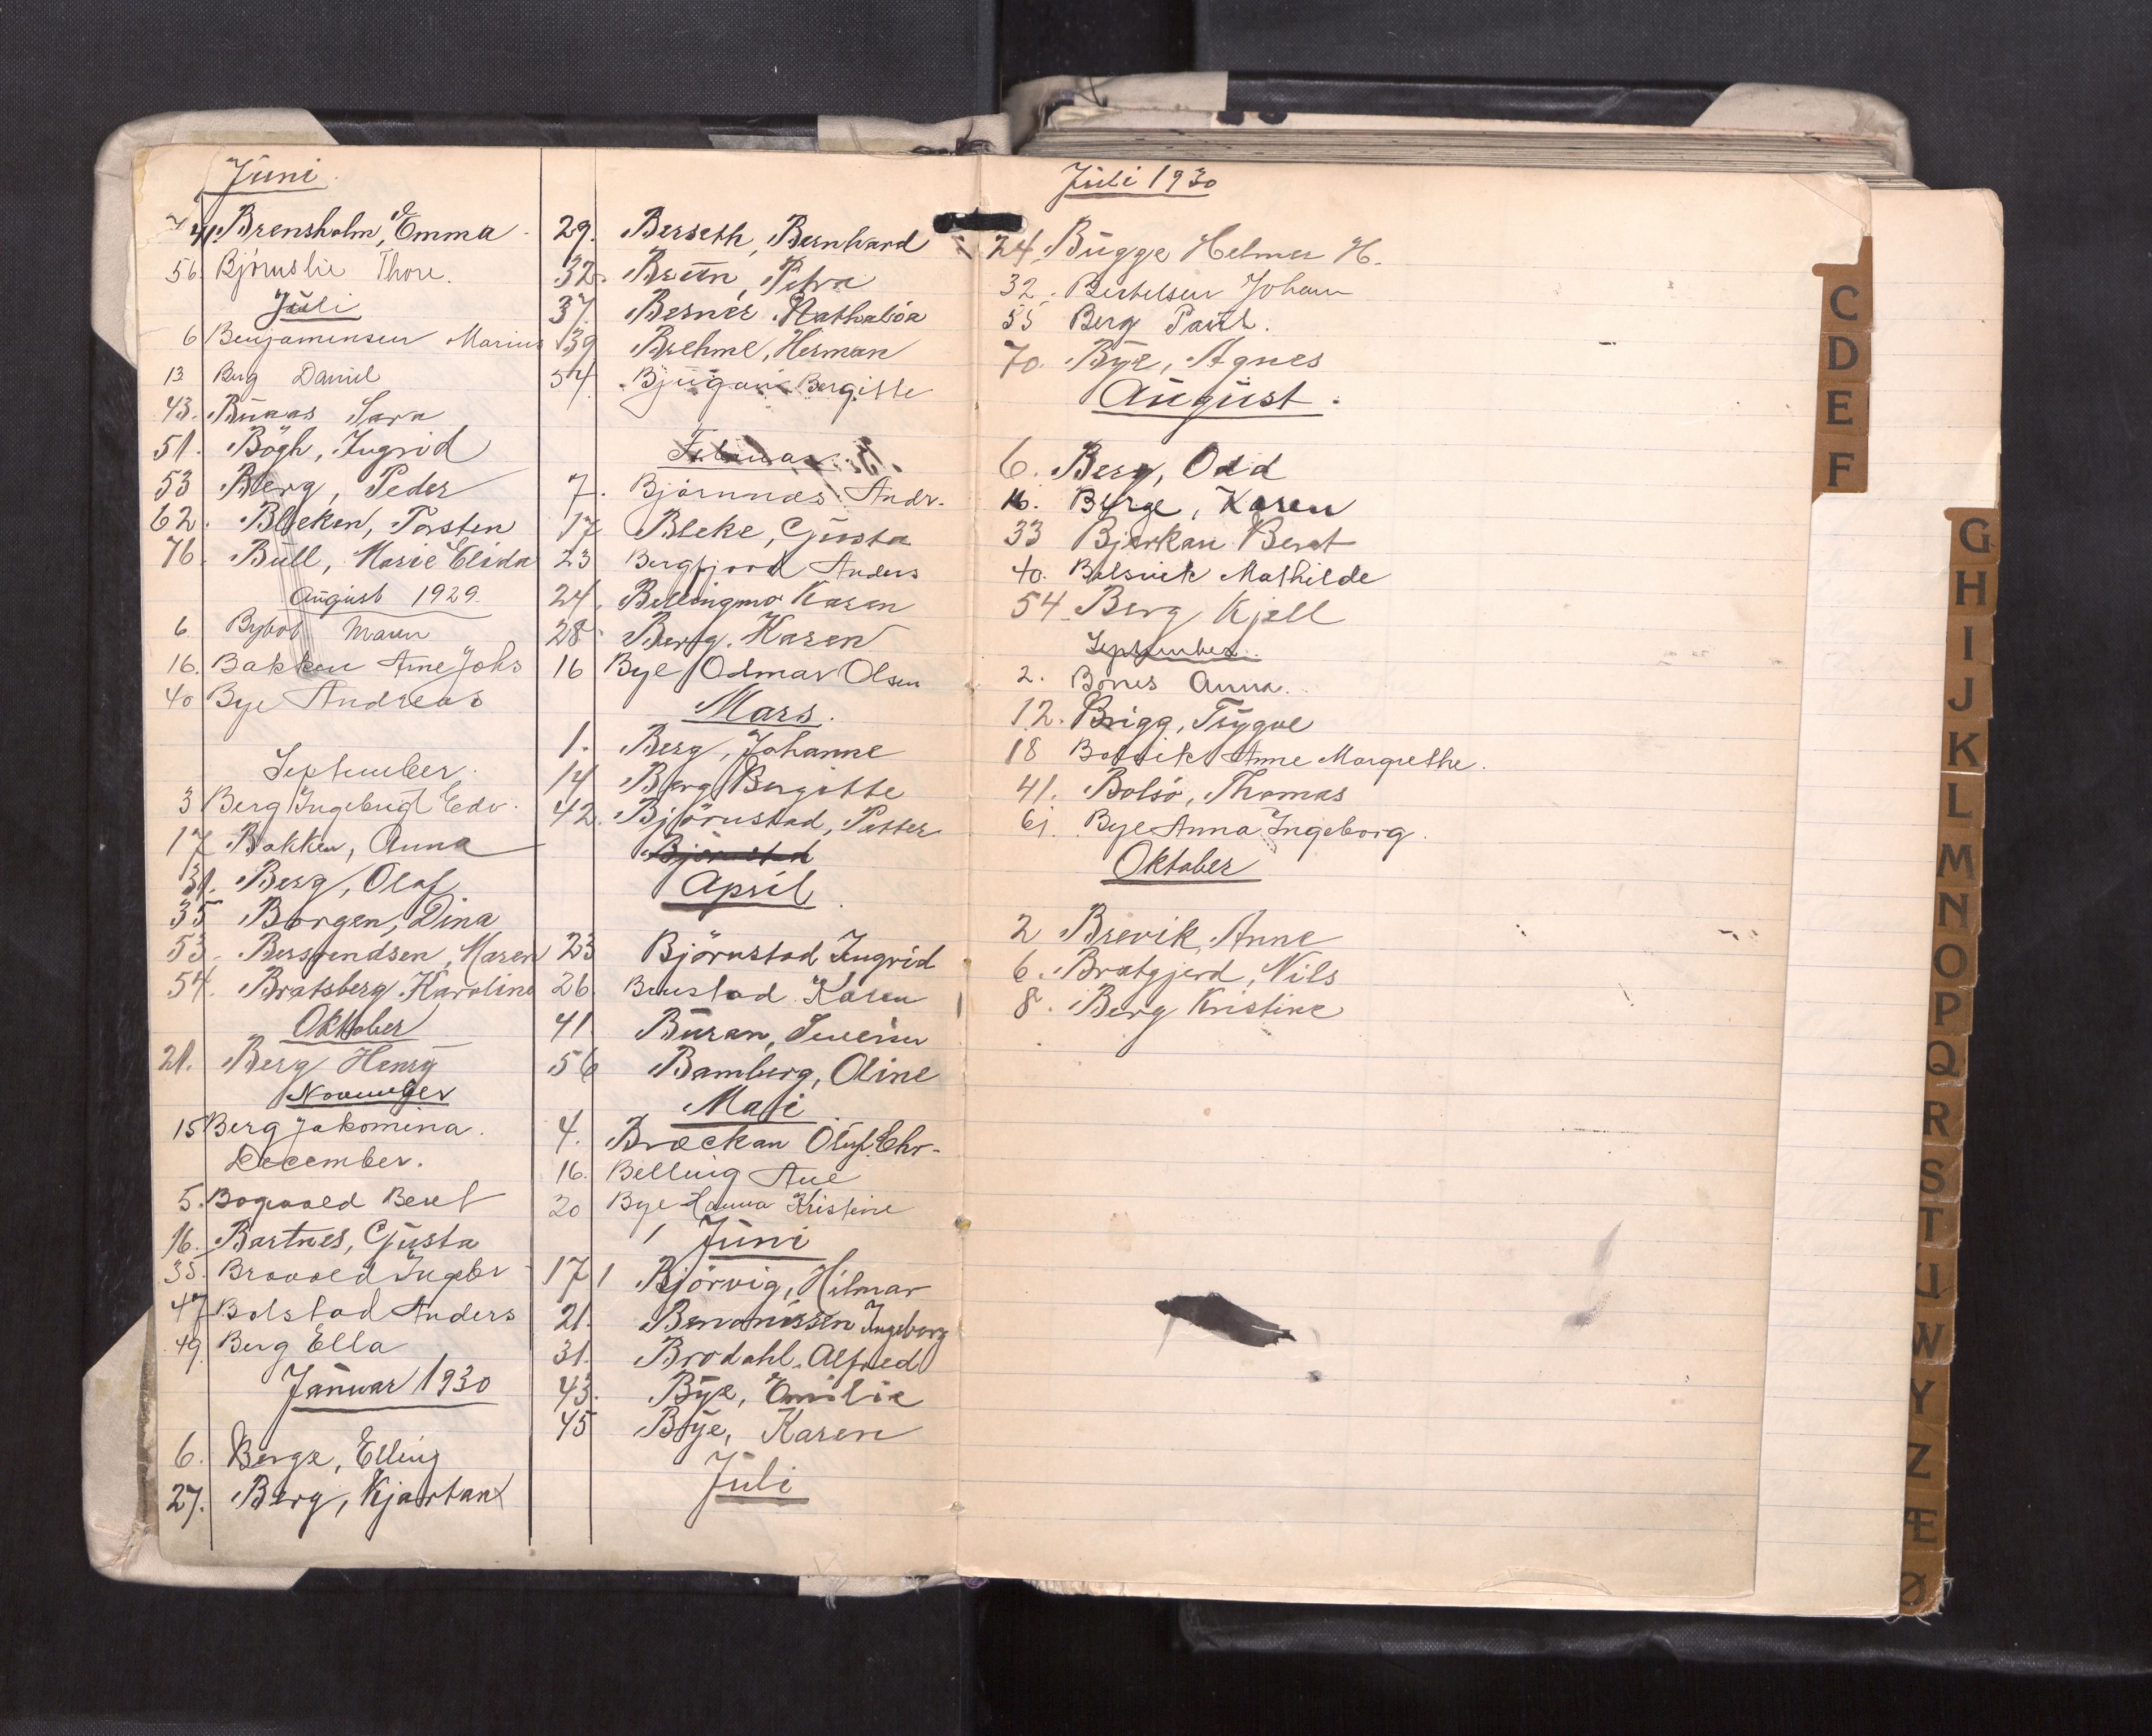 Juni
41. Brensholm, Emma
56. Björnslie Thore.
Juli
6 Benjaminsen Marius
13 Berg Daniel
43. Buaas Sara
51. Bögh, Ingrid
53 Berg, Peder
62. Bleken, Torsten
76. Bull, Marie Elida
August 1929.
6 Maren
16. Bakken Arne Johs
40 Bye Andreas
September.
3 Berg Ingebrigt Edv.
17 Bakken, Anna
31. Berg, Olaf
35 Borgen, Dina
53. Berntendsen, Maren
54. Bratsberg Karoline
Oktober
21. Berg Henry
November
15 Berg Jakomina.
December.
5. Beret
16. Bartnes, Gusta
35. Bravold Ingebr
47 Bolstad Anders
49. Berg Ella
Januar 1930
6. Berge, Elling
27. Berg, Kjartan
29. Berseth, Bernhard
32. Bruun, Petra
37. Berner Nathalia
39 Brehme, Herman
54. Bjugan Bergitte
Februar
7. Björnnæs Andr.
17 Bleke, Gusta
23 Bergfjord Anders
24. Bellingmo Karen
28. Berg. Karen
16 Bye Odmar Olsen
Mars.
1. Berg, Johanne
14 Berg Bergitte
42. Björnstad, Petter
Björnstad
April
23 Björnstad Ingrid
26. Karen
41 Buran, Severin
56 Bamberg, Oline
Mai
4. Brækan Oluf Chr.
16. Belling Ane
20 Bye Hanna Kristine
Juni
17 1 Björvig, Hilmar
21. Ingeborg
31. Brodahl. Alfred
43. Bye, Emilie
45 Bye, Karen
Juli
Juli 1930
24. Bugge Helmer H.
32. Bertelsen Johan
55 Berg Paul.
70. Bye, Agnes
August.
6. Berg, Odd
16. Berge, Karen
33 Bjerkan Beret
40. Bolsvik Mathilde
54 Berg Kjell
September.
2. Bones Anna.
12. Brigg, Trygve
18 Botvik Anne Margrethe.
41. Bolsö, Thomas
61. Bye Anna Ingeborg.
Oktober
2 Brevik, Anne
6. Bratgjerd, Nils
8. Berg Kristine
C
D
E
F
G
H
I
J
K
L
M
N
O
P
Q
R
S
T
U
W
Y
Z
Æ
Ø